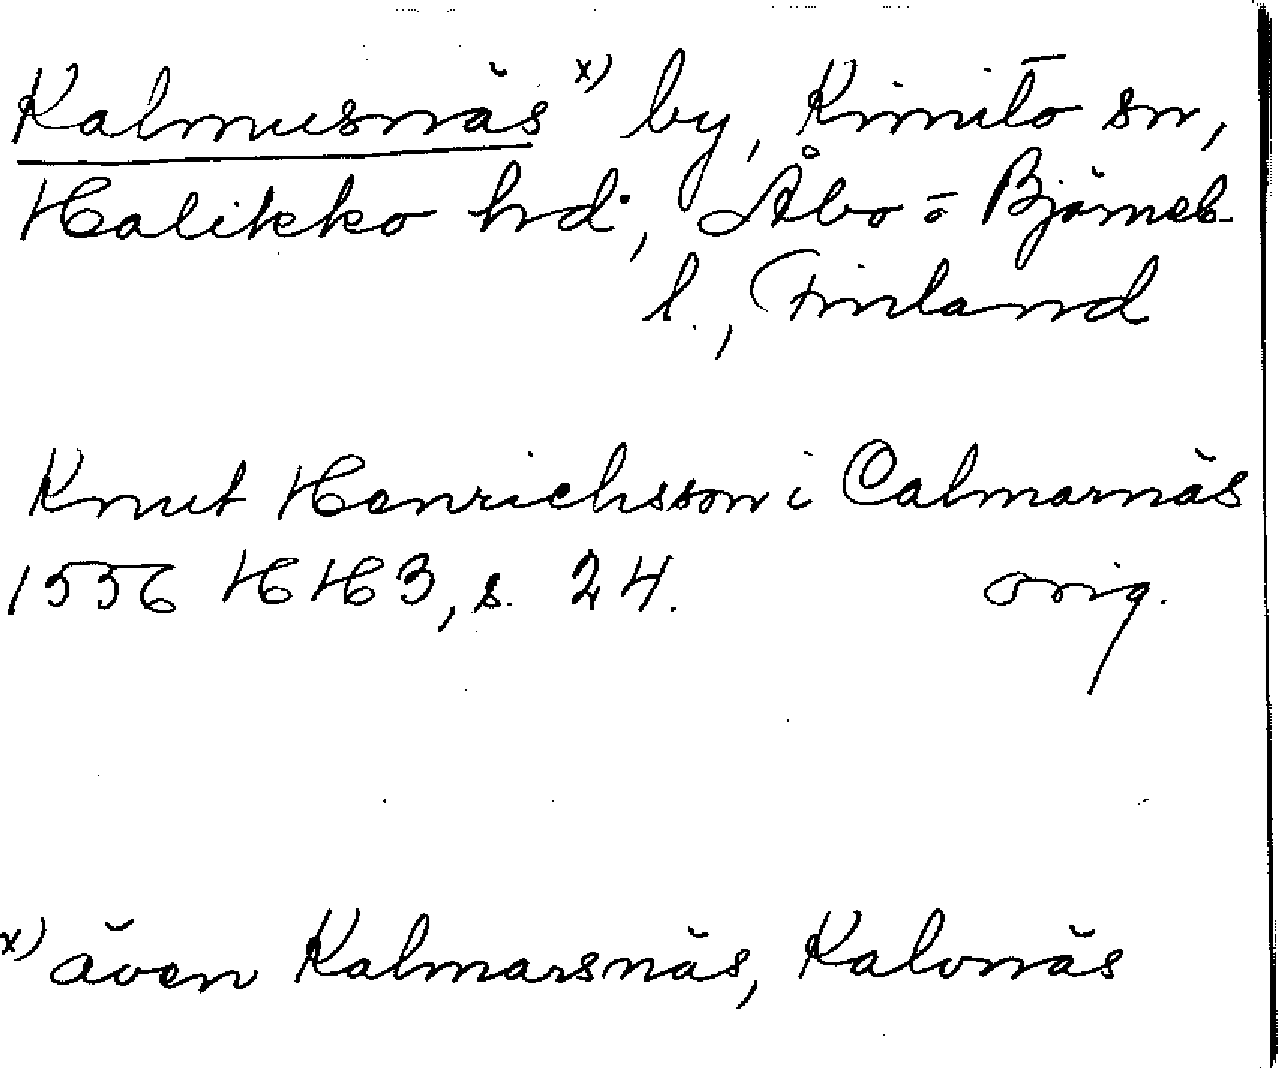 Kalmusnäs x) by, Kimito sn,
Halikko hd., Åbo- o Björneb.
l., Finland
Knut Henrichsson i Calmarnäs
1556 HH3, s. 24. orig.
x) även Kalmarsnäs, Kalvnäs